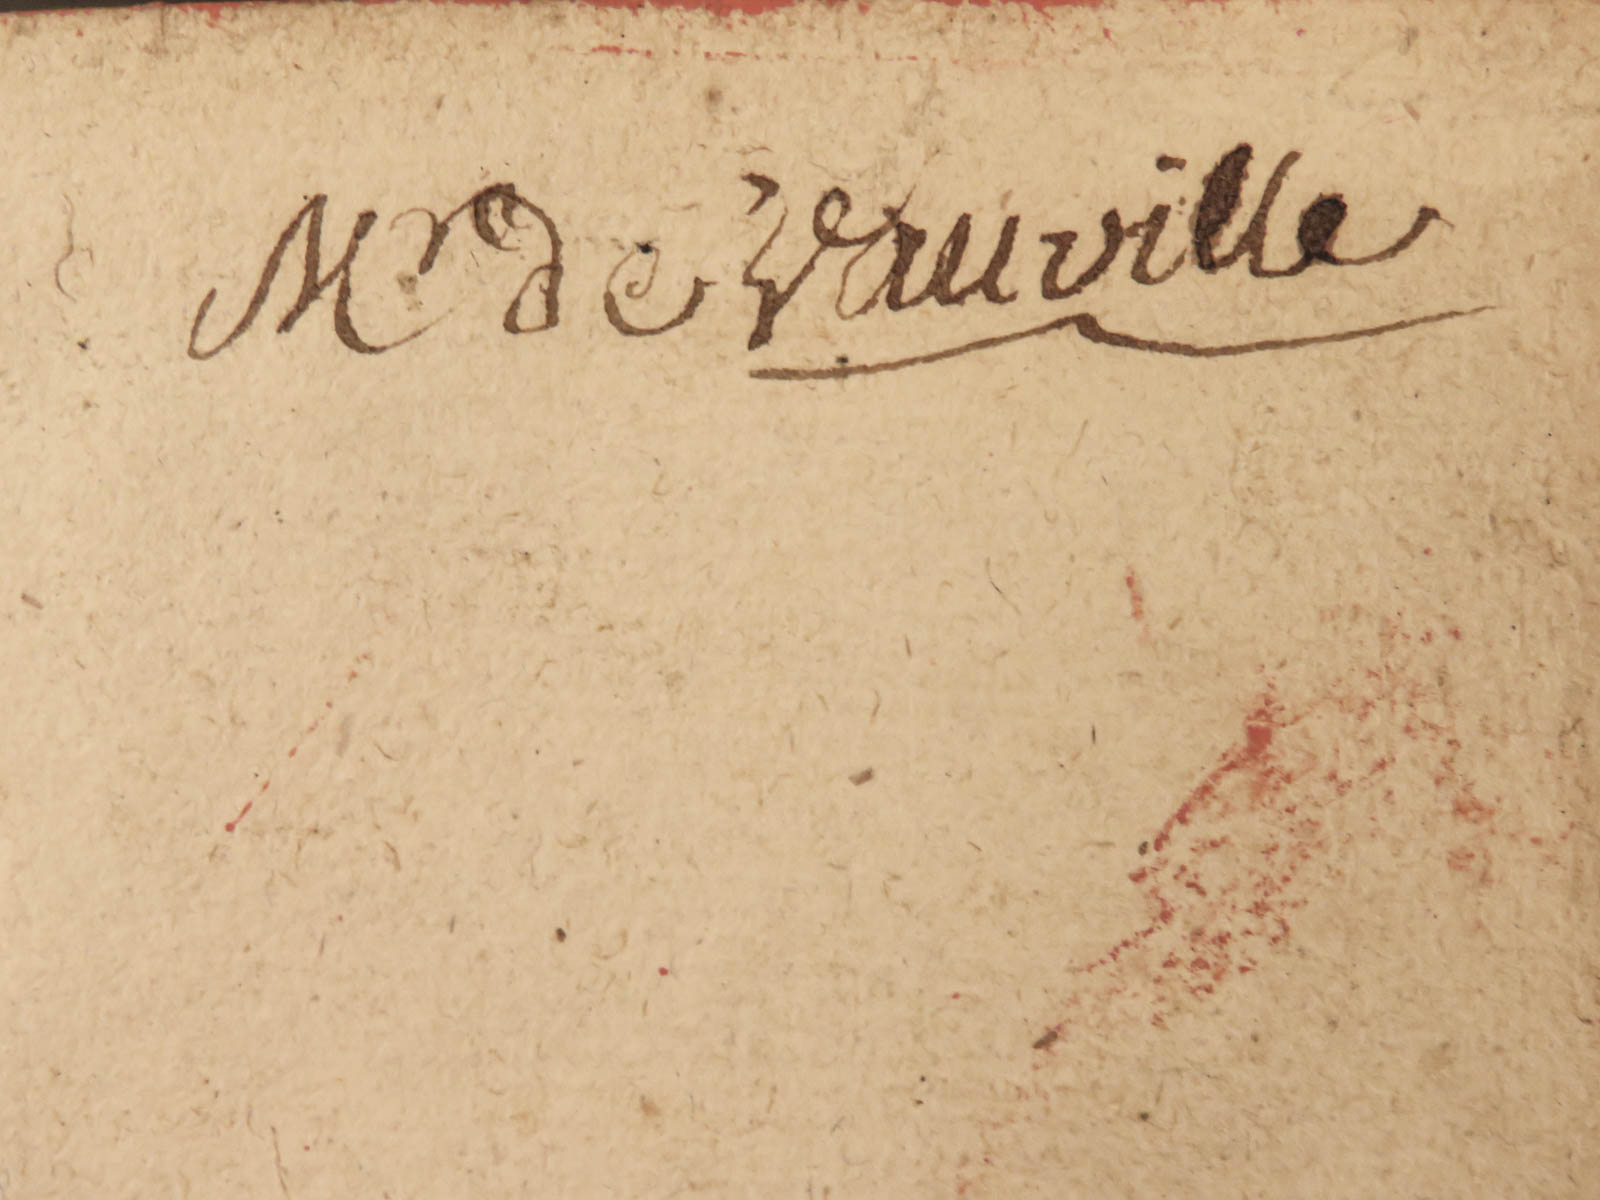 Mr de Vauville